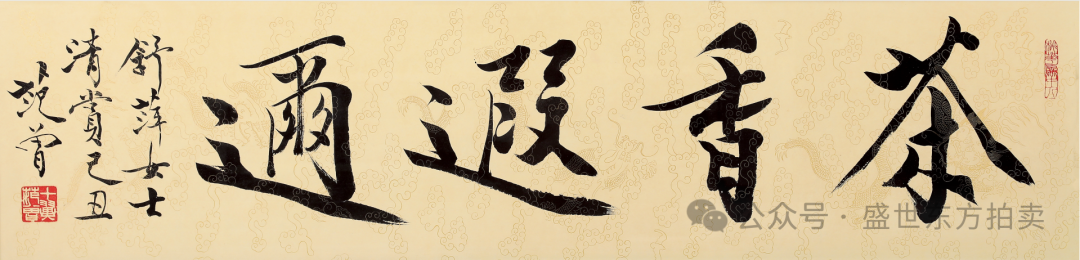 茶香遐邇
舒萍女士
清賞己丑
范曾
十翼
范曾
公众号·盛世东方拍卖